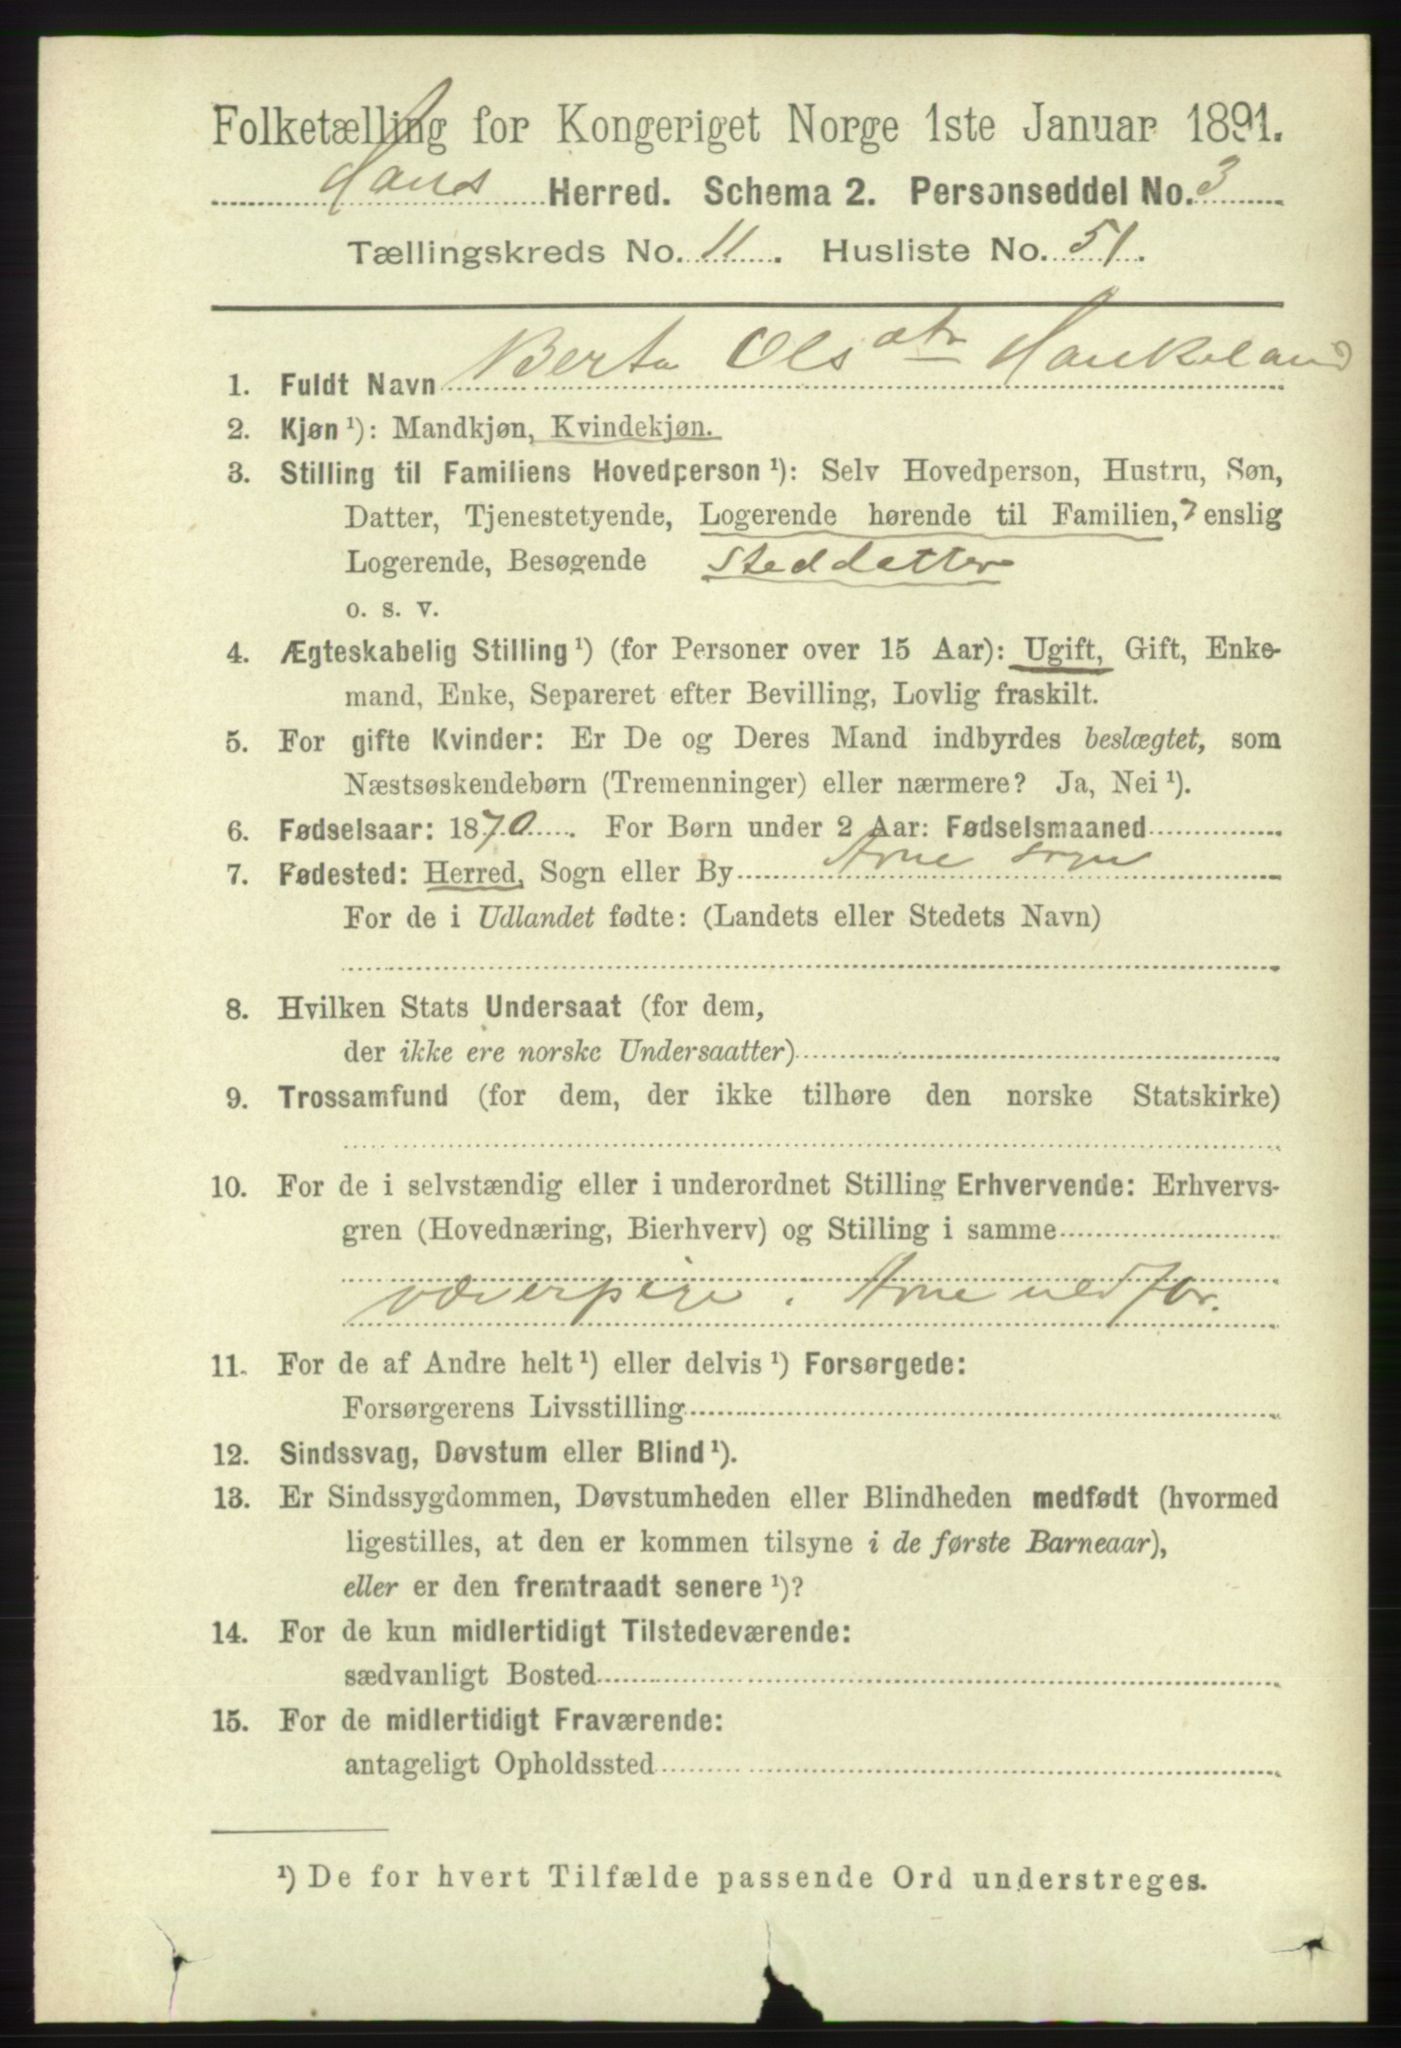 Folketælling for Kongeriget Norge 1ste Januar 1891.
Haus Herred. Schema 2. Personseddel No. 3
Tællingskreds No. 11. Husliste No. 51.
1. Fuldt Navn Berta Olsdtr Haukeland
2. Kjøn ¹): Mandkjøn, Kvindekjøn.
3. Stilling til Familiens Hovedperson ¹): Selv Hovedperson, Hustru, Søn,
Datter, Tjenestetyende, Logerende hørende til Familien, enslig
Logerende, Besøgende steddatter
o. s. v.
4. Ægteskabelig Stilling ¹) (for Personer over 15 Aar): Ugift, Gift, Enke-
mand, Enke, Separeret efter Bevilling, Lovlig fraskilt.
5. For gifte Kvinder: Er De og Deres Mand indbyrdes beslægtet, som
Næstsøskendebørn (Tremenninger) eller nærmere? Ja, Nei ¹).
6. Fødselsaar: 1870. For Børn under 2 Aar: Fødselsmaaned
7. Fødested: Herred, Sogn eller By Arne sogn
For de i Udlandet fødte: (Landets eller Stedets Navn)
8. Hvilken Stats Undersaat (for dem,
der ikke ere norske Undersaatter)
9. Trossamfund (for dem, der ikke tilhøre den norske Statskirke)
10. For de i selvstændig eller i underordnet Stilling Erhvervende: Erhvervs-
gren (Hovednæring, Bierhverv) og Stilling i samme
væverpige. Arne
11. For de af Andre helt ¹) eller delvis ¹) Forsørgede:
Forsørgerens Livsstilling
12. Sindssvag, Døvstum eller Blind ¹).
13. Er Sindssygdommen, Døvstumheden eller Blindheden medfødt (hvormed
ligestilles, at den er kommen tilsyne i de første Barneaar),
eller er den fremtraadt senere ¹)?
14. For de kun midlertidigt Tilstedeværende:
sædvanligt Bosted
15. For de midlertidigt Fraværende:
antageligt Opholdssted
¹) De for hvert Tilfælde passende Ord understreges.